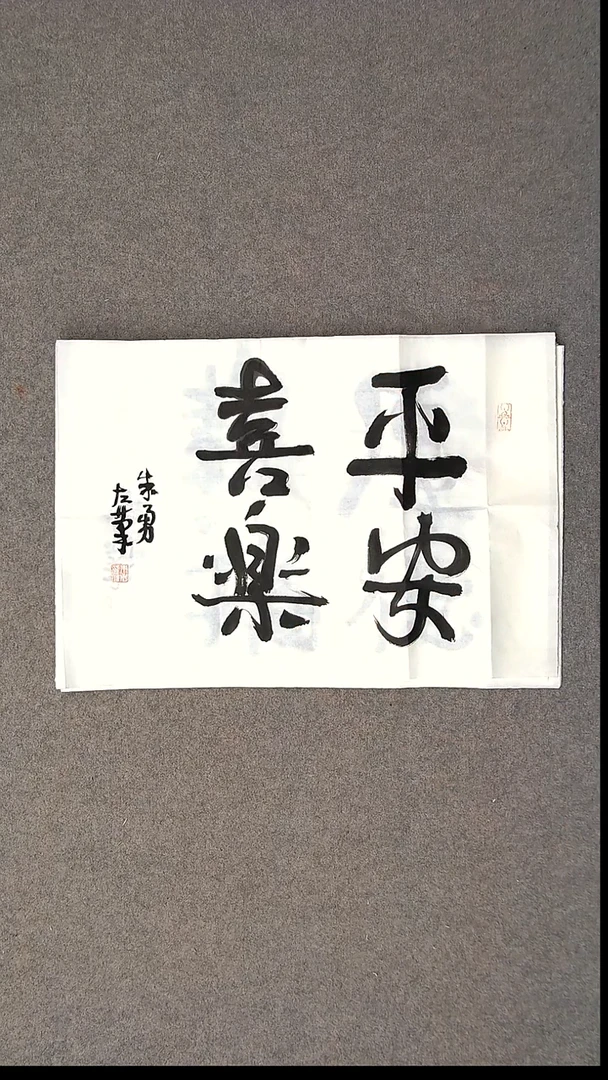 平安
喜楽
朱勇
左筆